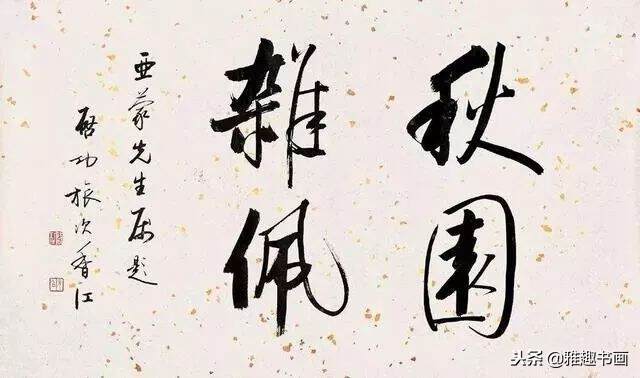 秋園
雜佩
亚蒙先生属题
启功旅次香江
头条@雅趣书画